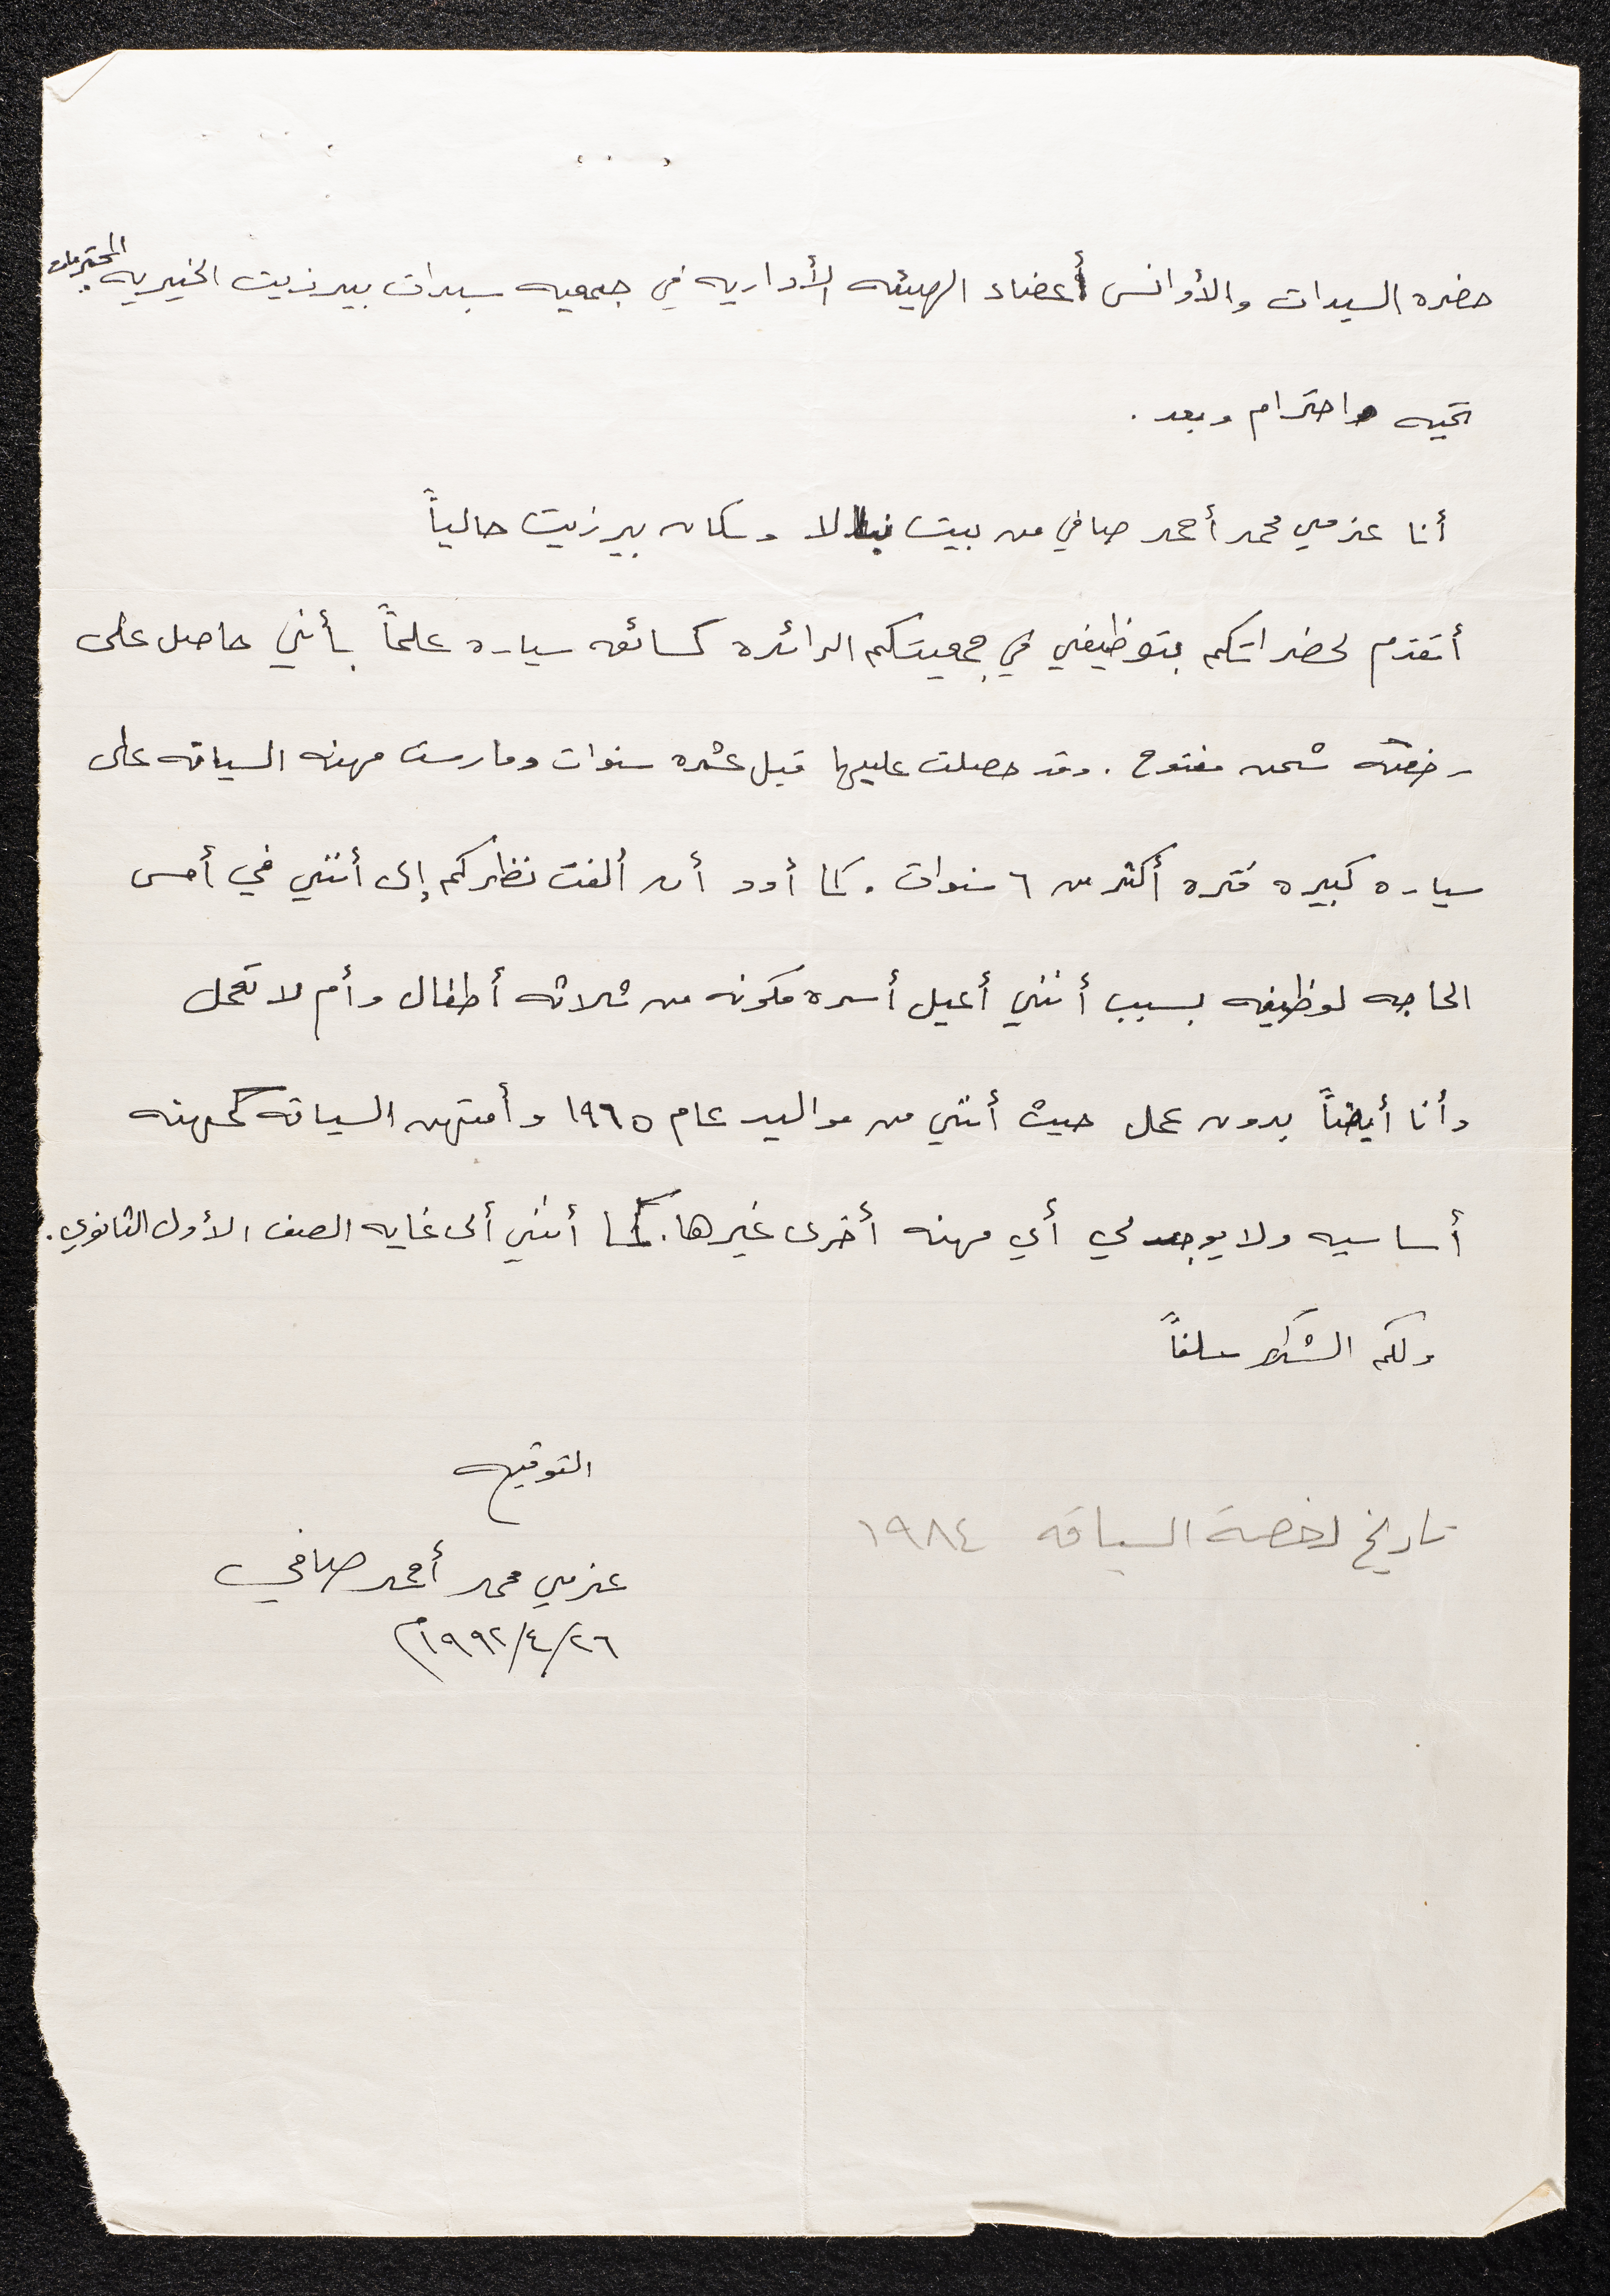 حضره السيدات والأوانس أعضاء الهيئه الأداريه في جمعيه سيدات بيرزيت الخيريه المحترمات.
تحيه واحترام وبعد.
أنا عزمي محمد أحمد صافي من بيت نبالا وسكان بيرزيت حالياً
أتقدم لحضراتكم بتوظيفي في جمعيتكم الرائده كسائق سياره علماً بأنني حاصل على
رخصة شحن مفتوح. وقد حصلت عليها قبل عشره سنوات ومارست مهنه السياقه على
سياره كبيره فتره أكثر من ٦ سنوات. كما أود أن ألفت نظركم إلى أنني في أمس
الحاجه لوظيفه بسبب أنني أعيل أسره مكونه من ثلاثه أطفال وأم لا تعمل
وأنا أيضاً بدون عمل حيث أنني من مواليد عام ١٩٦٥ وأمتهن السياقه كمهنه
أساسيه ولا يوجد لي أي مهنه أخرى غيرها. كما أنني ألى غايه الصف الأول الثانوي.
ولكم الشكر سلفاً
التوقيع
تاريخ رخصة السياقه ١٩٨٤
عزمي محمد أحمد صافي
٢٦/٤/١٩٩٢م